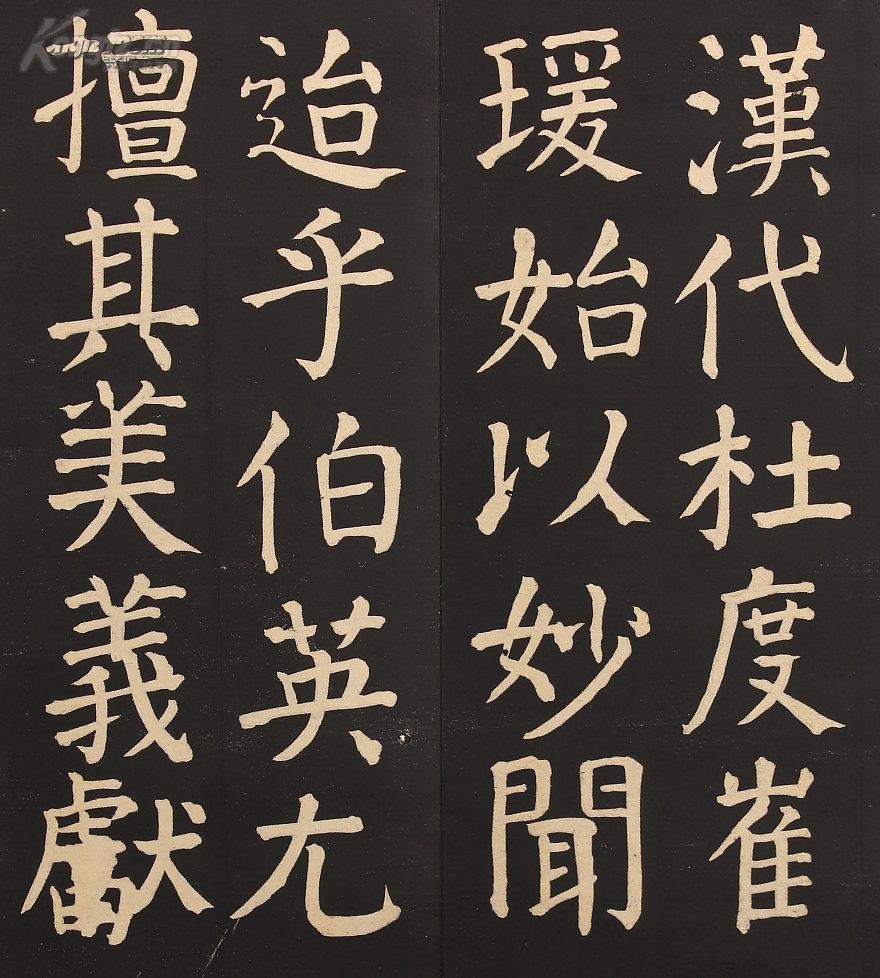 漢代杜度崔
瑗始以妙聞
迨乎伯英尤
擅其美義獻